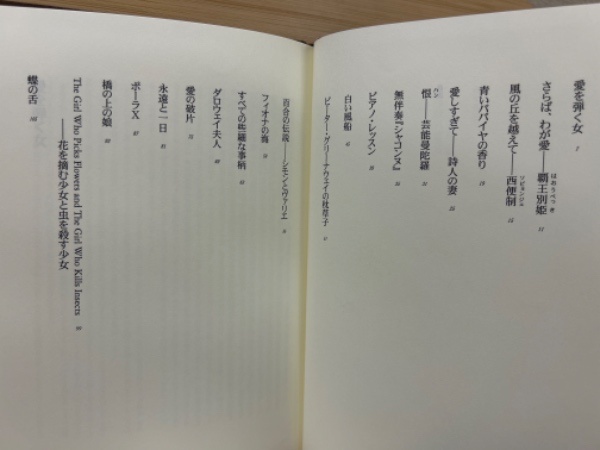 愛を弾く女 7
さらば、わが愛——覇王別姫 11
はおうべっき
風の丘を越えて——西便制
ソピョンジェ
青いパパイヤの香り
愛しすぎて——詩人の妻
恨——芸能曼陀羅
ハン
無伴奏『シャコンヌ』
ピアノ・レッスン
白い風船
ピーター・グリーナウェイの枕草子
百合の伝説——シモンとヴァリエ
フィオナの海
すべての些細な事柄
ダロウェイ夫人
愛の破片
永遠と一日
ポーラX
橋の上の娘
The Girl Who Picks Flowers and The Girl Who Kills Insects
——花を摘む少女と虫を殺す少女
蝶の舌